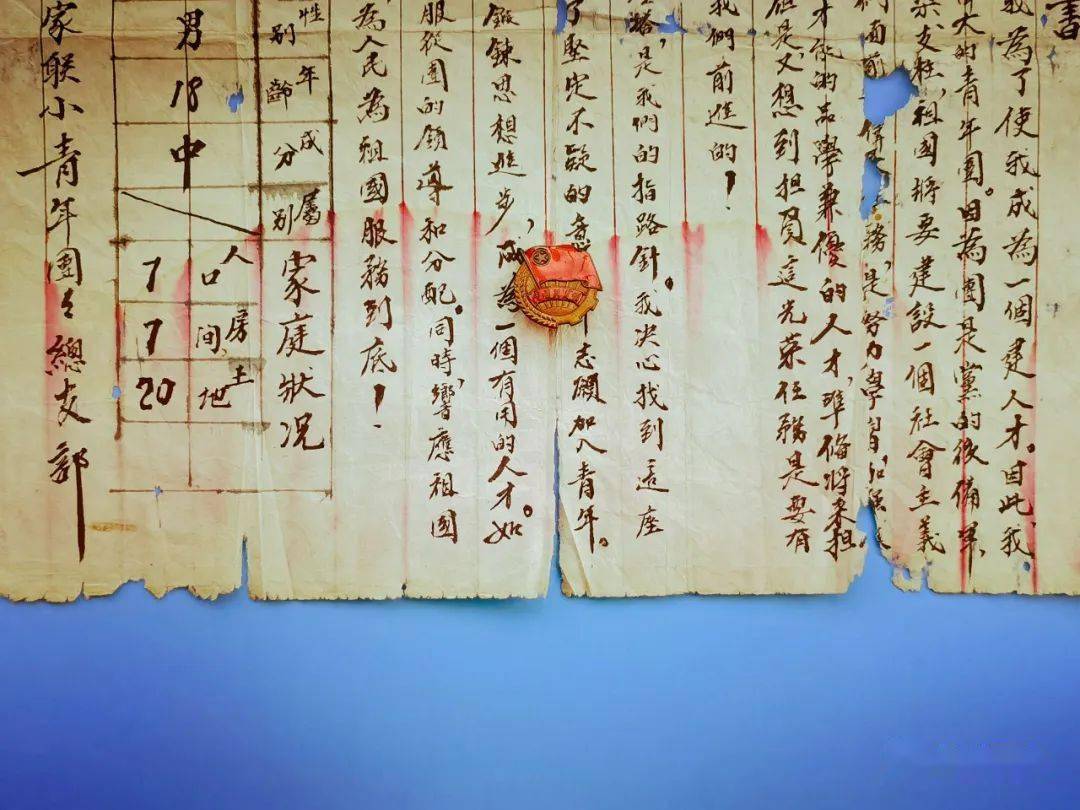 書
我為了使我成為一個建人才。因此我
大的青年團。因為團是黨的後備軍,
支柱,祖國將要建設一個社會主義
們面前 務,是努力學習,加強
才能的品學兼優的人才,準備將來担
但是,又想到担負這光荣任務是要有
我們前進的!
路,是我們的指路針。我决心找到這座
了堅定不毅的意 志願加入青年。
鍛鍊思想進步,成為一個有用的人才。如
服從團的領導和分配。同時,響應祖國
為人民為祖國服務到底!
性別 年齡 成分 屬別 家庭狀况
人口 房间 土地
男 18 中 7 7 20
家联小青年團々總支部